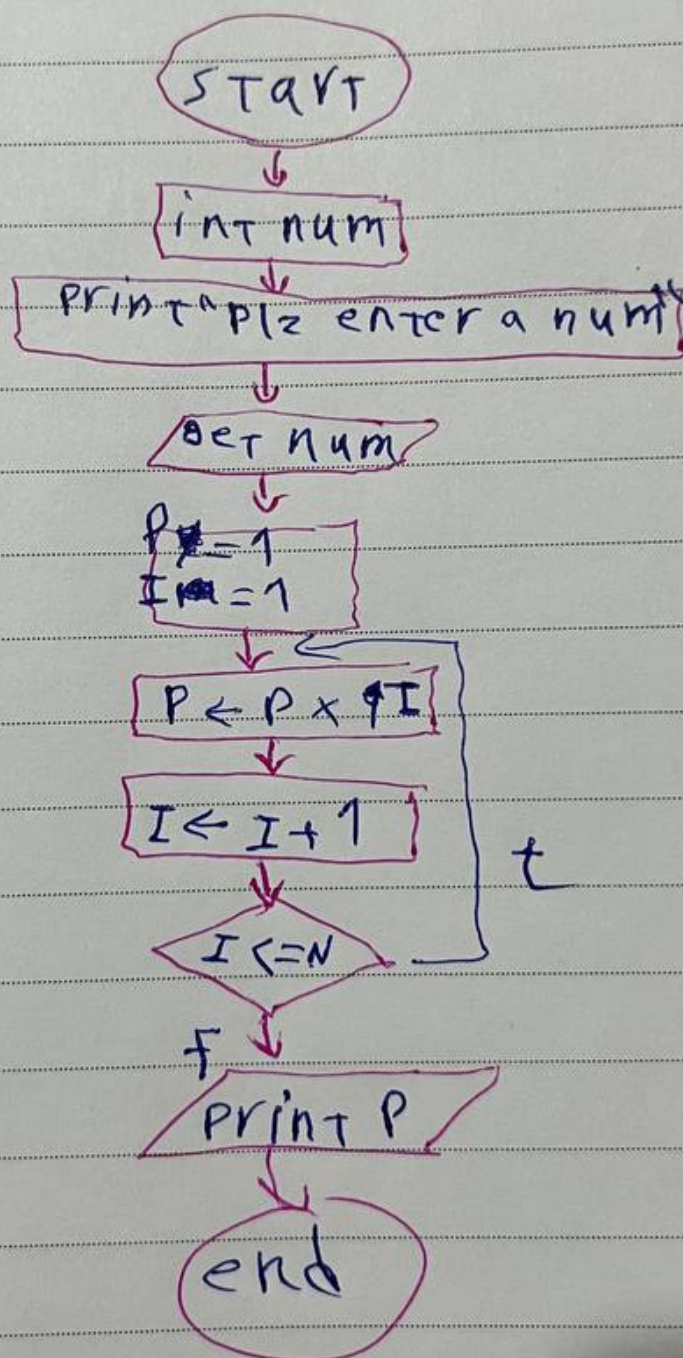 START
int num
print "plz enter a num"
get num
P = 1
I = 1
P ← P × I
I ← I + 1
t
I <= N
F
print P
end